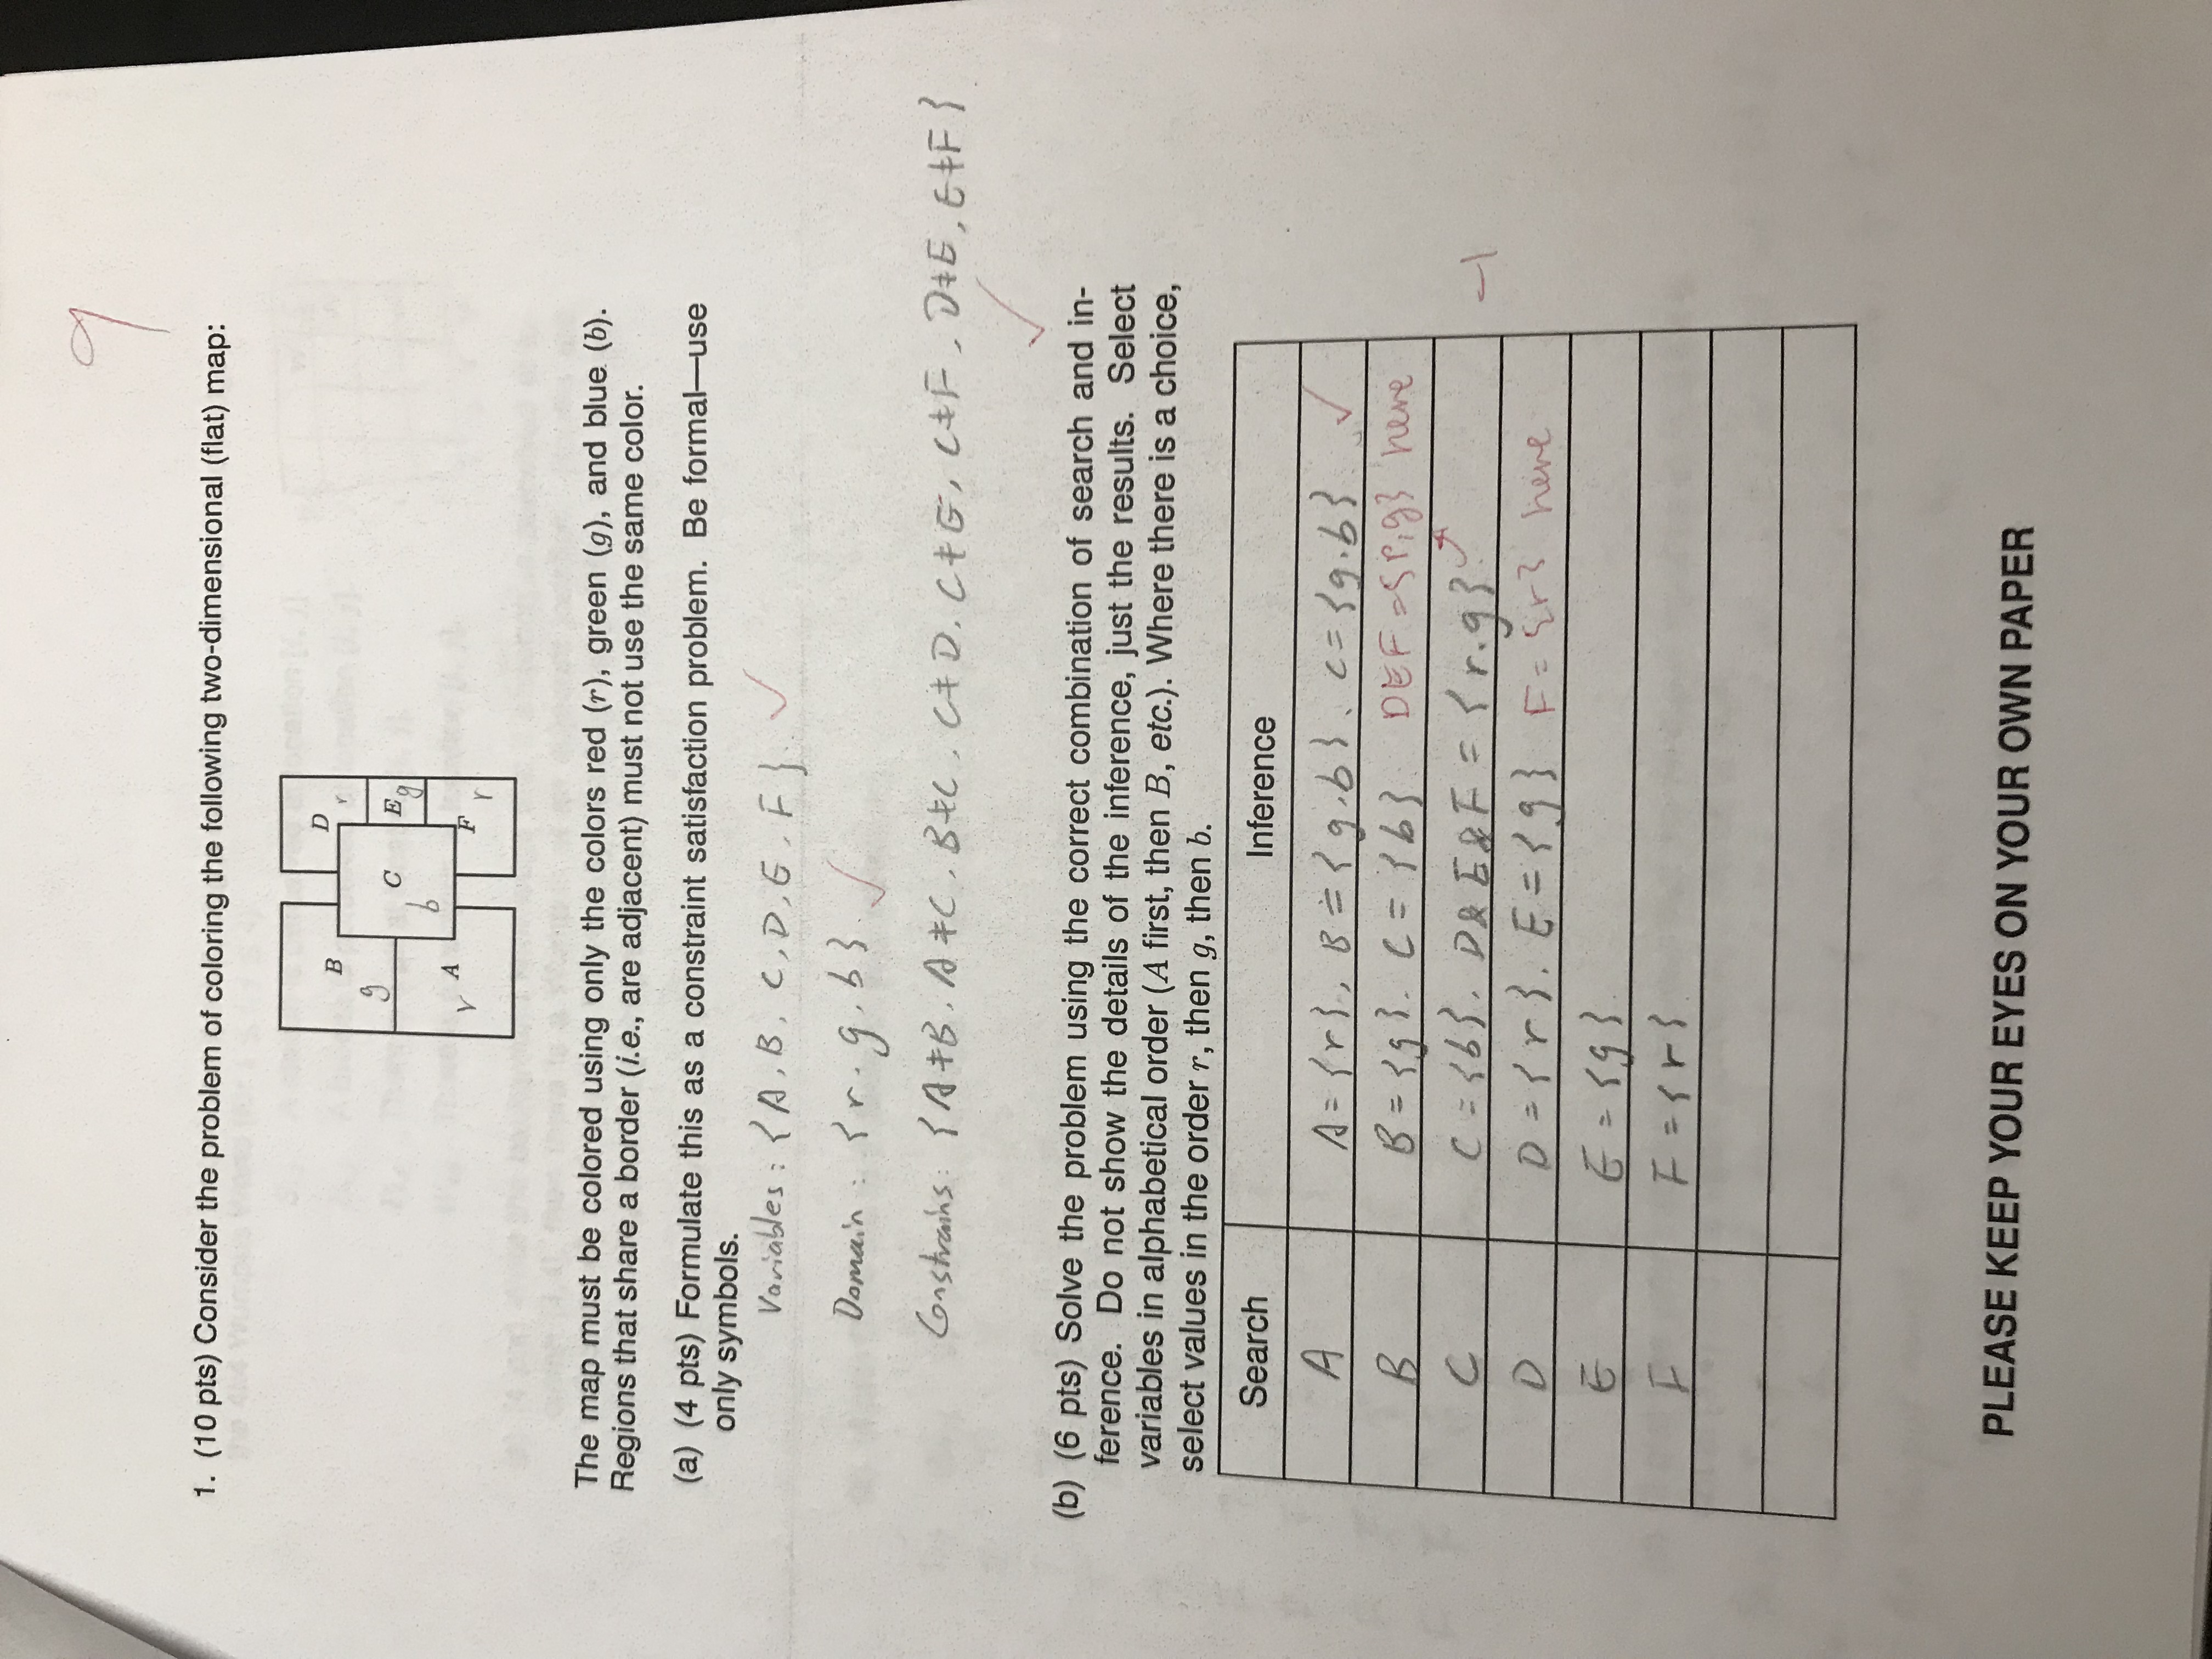 9
1. (10 pts) Consider the problem of coloring the following two-dimensional (flat) map:
B
D
r
g
C
E
g
b
A
F
r
r
The map must be colored using only the colors red (r), green (g), and blue (b).
Regions that share a border (i.e., are adjacent) must not use the same color.
(a) (4 pts) Formulate this as a constraint satisfaction problem. Be formal—use
only symbols.
Variables : { A, B, C, D, E, F }. ✓
Domain : { r. g. b }. ✓
Constrains: { A≠B, A≠C, B≠C, C≠D, C≠E, C≠F, D≠E, E≠F }
✓
(b) (6 pts) Solve the problem using the correct combination of search and in-
ference. Do not show the details of the inference, just the results. Select
variables in alphabetical order (A first, then B, etc.). Where there is a choice,
select values in the order r, then g, then b.
Search Inference
A A={r}, B={g.b}, C={g.b} ✓
B B={g}. C={b} DEF={r,g} here
C C={b}. D&E&F={r.g}
-1
D D={r}. E={g} F={r} here
E E={g}.
F F={r}.
PLEASE KEEP YOUR EYES ON YOUR OWN PAPER